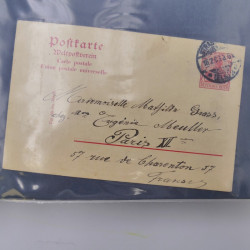 Postkarte
Weltpostverein
Carte postale
Union postale universelle
A Mademoiselle Mathilde
Eugénie Meuller
Paris XII
57 rue de Charenton 57
France